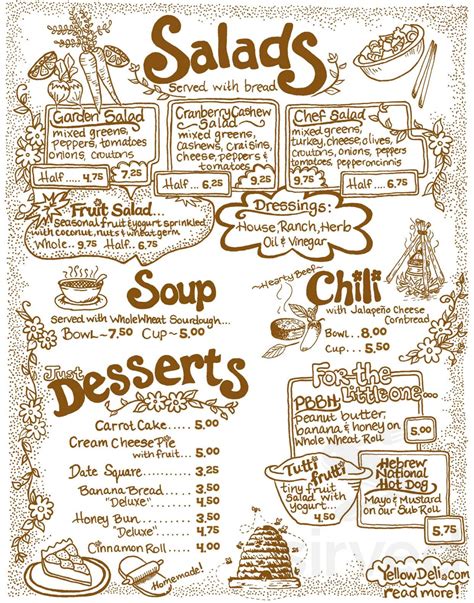 Salads
Served with bread
Garden Salad
mixed greens,
peppers, tomatoes
onions, croutons
7.25
Half..... 4.75
Cranberry Cashew
Salad
mixed greens,
cashews, craisins,
cheese, peppers &
tomatoes
9.25
Half... 6.25
Chef Salad
mixed greens,
turkey, cheese, olives,
croutons, onions, peppers
tomatoes, pepperoncinis
9.75
Half... 6.75
Fruit Salad...
seasonal fruit & yogurt sprinkled
with coconut, nuts & wheat germ
Whole... 9.75 Half... 6.75
Dressings:
House, Ranch, Herb
Oil & Vinegar
Soup
Served with Whole Wheat Sourdough...
Bowl~7.50 Cup~5.00
~Hearty Beef~
Chili
with Jalapeño Cheese
Cornbread
Bowl.. 8.00
Cup... 5.50
Just
Desserts
Carrot Cake..... 5.00
Cream Cheese Pie
with fruit..... 5.00
Date Square..... 3.25
Banana Bread... 3.25
"Deluxe" 4.50
Honey Bun... 3.50
"Deluxe" 4.75
Cinnamon Roll... 4.00
Homemade!
For the
Little one...
PBBH:
peanut butter,
banana & honey on
Whole Wheat Roll
5.00
Tutti
frutti
tiny fruit
salad with
yogurt...
4.50
Hebrew
National
Hot Dog
Mayo & Mustard
on our Sub Roll
5.75
YellowDeli.Com
read more!